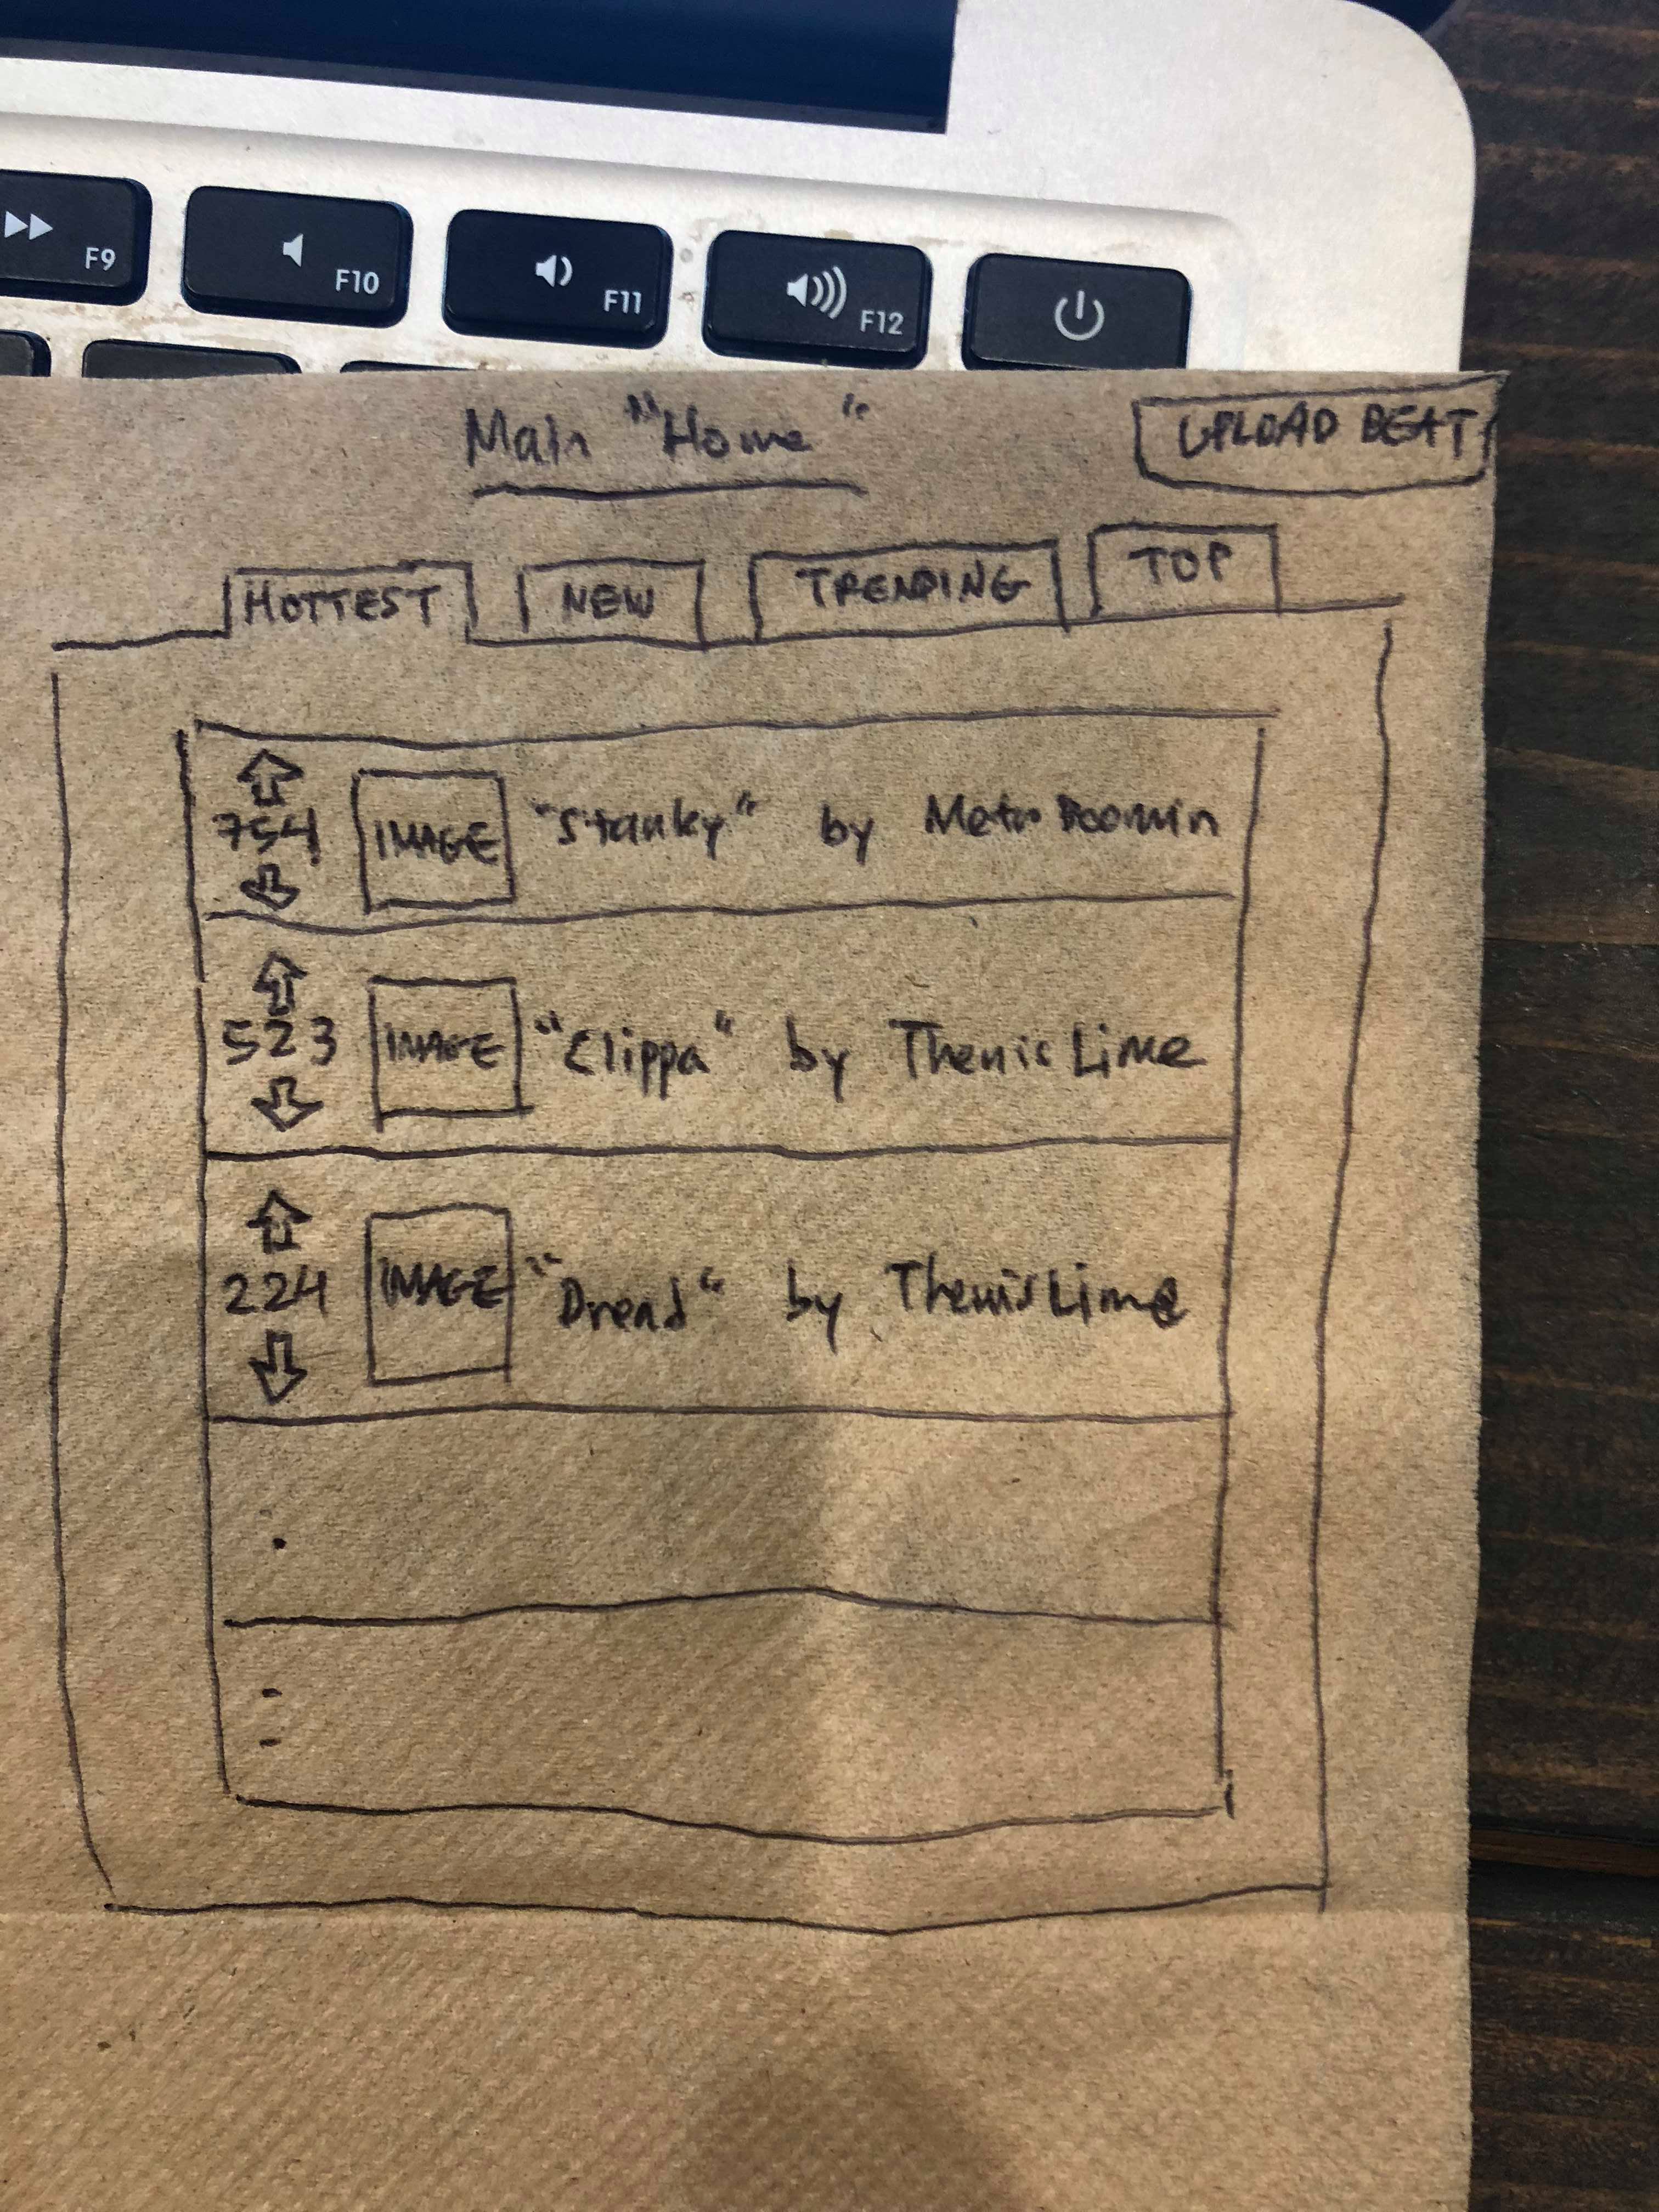 F9
F10
F11
F12
Main "Home"
UPLOAD BEAT
HOTTEST NEW TRENDING TOP
754 IMAGE "Stanky" by Metro Boomin
523 IMAGE "Clippa" by Thenis Lime
224 IMAGE "Dread" by Thenis Lime